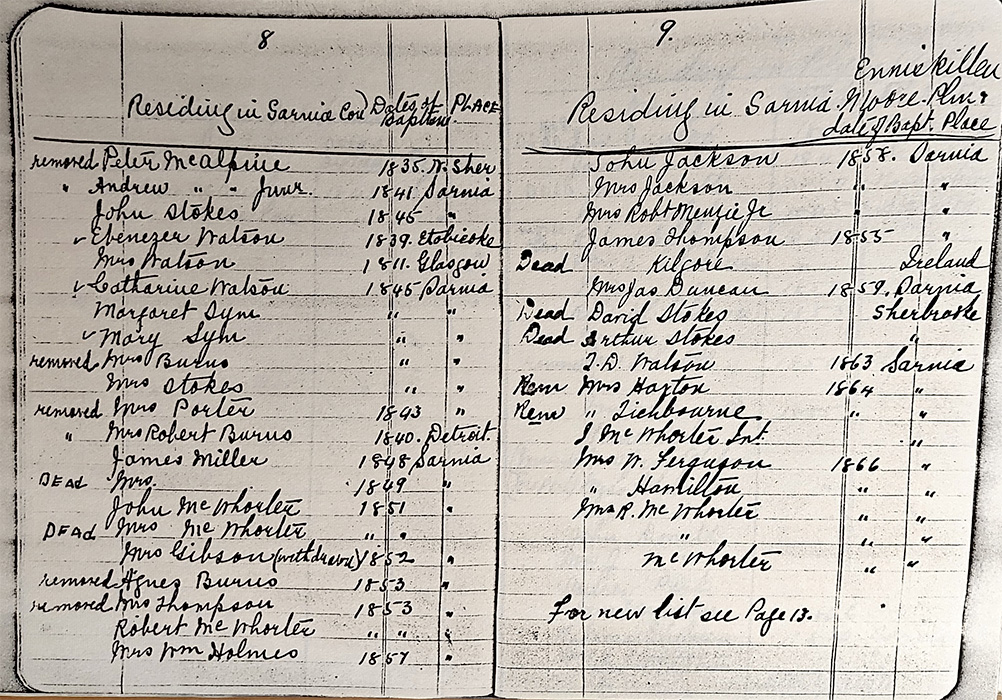 8
Residing in Sarnia Con) Dates of Baptism PLACE
removed Peter McAlpine 1835. N. Sher
" Andrew " " Junr. 1841 Sarnia
John Stokes 1845 "
✓ Ebenezer Watson 1839. Etobicoke
Mrs Watson 1811. Glasgow
✓ Catharine Watson 1845 Sarnia
Margaret Sym " "
✓ Mary Sym " "
removed Mrs Burns " "
Mrs Stokes " "
removed Mrs Porter 1843 "
" Mrs Robert Burns 1840. Detroit.
James Miller 1848 Sarnia
DEAD Mrs. 1849 "
John McWhorter 1851 "
DEAD Mrs McWhorter " "
Mrs Gibson (withdrawn) 1852 "
removed Agnes Burns 1853 "
removed Mrs Thompson 1853 "
Robert McWhorter " " "
Mrs Wm Holmes 1857 "
9.
Enniskillen
Residing in Sarnia. Moore. Plym &
date of Bapt. Place
John Jackson 1858. Sarnia
Mrs Jackson " "
Mrs Robt Menzie Jr " "
James Thompson 1855 "
Dead Kilgore Ireland
Mrs Jas Duncan 1859. Sarnia
Dead David Stokes Sherbrooke
Dead Arthur Stokes "
T. D. Watson 1863 Sarnia
Rem Mrs Haxton 1864 "
Rem " Lichbourne " "
J McWhorter Int. "
Mrs W. Ferguson 1866 "
" Hamilton " "
Mrs R. McWhorter " "
" " "
McWhorter " "
For new list see Page 13.